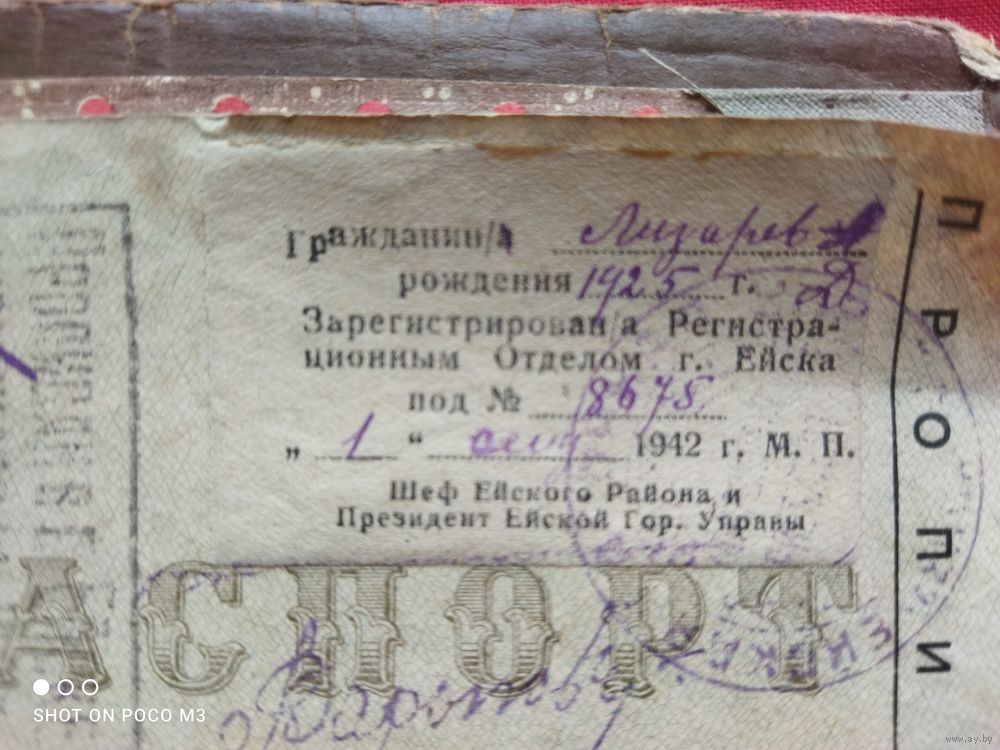 Гражданин/а Лизарев
рождения 1925 г.
Зарегистрирован/а Регистра-
ционным Отделом г. Ейска
под № 8675
„ 1 “ сен 1942 г. М. П.
Шеф Ейского Района и
Президент Ейской Гор. Управы
АСПОРТ
ПРОПИ
SHOT ON POCO M3
www.ay.by